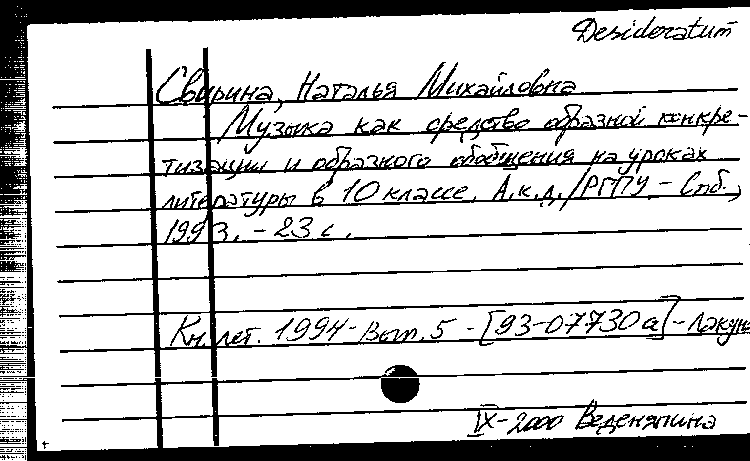 Desideratum
Свирина, Наталья Михайловна
Музыка как средство образной конкре-
тизации и образного обобщения на уроках
литературы в 10 классе. А.к.д. / РГПУ - Спб.,
1993. - 23 с.
Кн. лет. 1994 - Вып. 5 - [93-07730а] - Лакун
IX-2000 Веденяпина